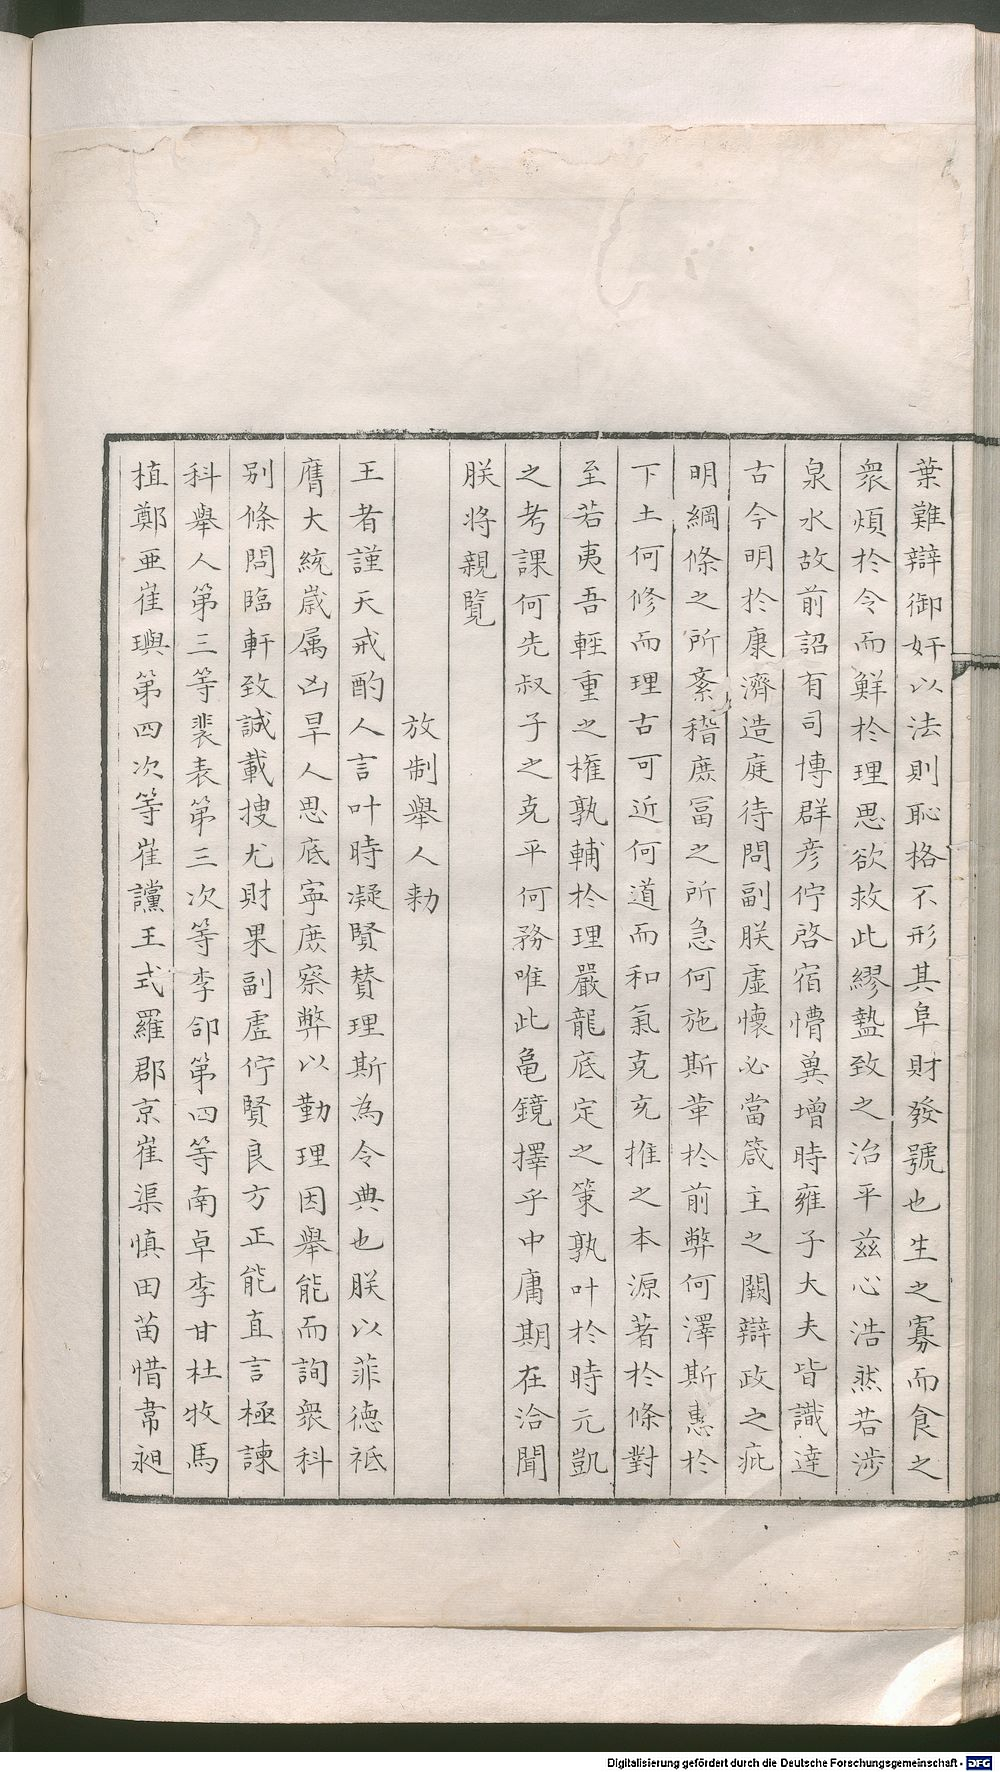 葉難辯御奸以法則恥格不形其阜財發號也生之寡而食之
衆煩於令而鮮於理思欲救此繆盭致之治平兹心浩然若涉
泉水故前詔有司博群彦佇啓宿懵冀增時雍子大夫皆識達
古今明於康濟造庭待問副朕虚懷必當箴主之闕辯政之疵
明綱條之所紊稽庶冨之所急何施斯革於前弊何澤斯惠於
下土何修而理古可近何道而和氣克充推之本源著於條對
至若夷吾輕重之權孰輔於理嚴龍底定之策孰叶於時元凱
之考課何先叔子之克平何務唯此龜鏡擇乎中庸期在洽聞
朕将親覧
放制舉人勑
王者謹天戒酌人言叶時凝賢賛理斯為令典也朕以菲德祗
膺大統歳属凶旱人思底寜庶察弊以勤理因舉能而詢衆科
别條問臨軒致誠載搜尤財果副虚佇賢良方正能直言極諫
科舉人第三等裴表第三次等李郃第四等南卓李甘杜牧馬
植鄭亜崔璵第四次等崔讜王式羅郡京崔渠慎田苗惜韋昶
Digitalisierung gefördert durch die Deutsche Forschungsgemeinschaft - DFG